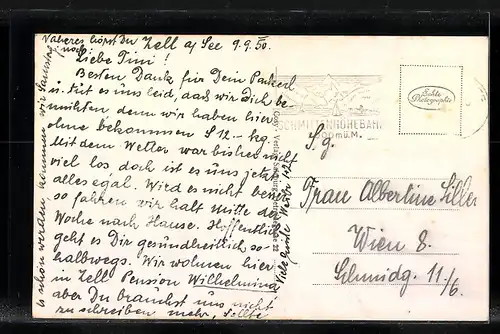 Näheres hörst Du noch.
Zell a/See 9.9.50.
Liebe Tini!
Besten Dank für Dein Packerl
u. tut es uns leid, das wir Dich be-
mühten denn wir haben hier
ohne bekommen S 12.– kg.
Mit dem Wetter war bisher nicht
viel los doch ist es uns jetzt
alles egal. Wird es nicht besser
so fahren wir halt mitte der
Woche nach Hause. Hoffentlich
geht es Dir gesundheitlich so-
halbwegs. Wir wohnen hier
in Zell Pension Wilhelmina
aber Du brauchst uns nicht
zu schreiben mehr, sollte
es schön werden, kommen wir Samstag
Viele gute
SCHMITTENHÖHEBAHN
2000 m ü. M.
Echte
Photographie
S. g.
Frau Albertine Siller
Wien 8.
Schmidg. 11/6.